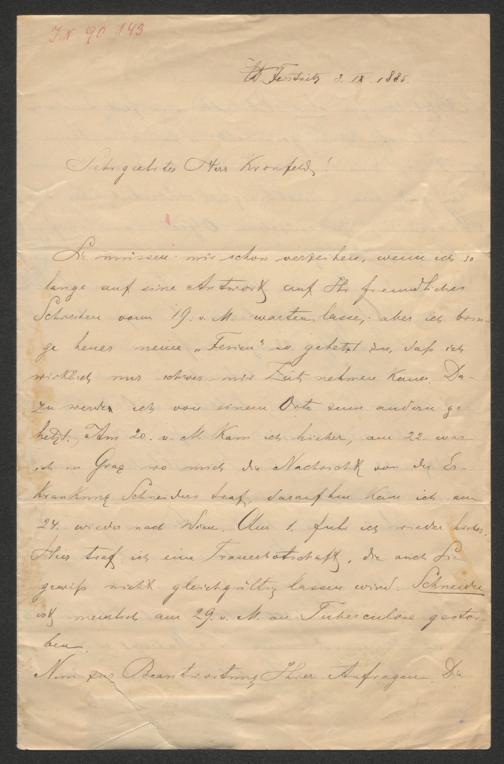 I.N. 90.143
W. Feistritz 3. IX. 1886.
Sehr geehrter Herr Kronfeld!
Sie müssen mir schon verzeihen, wenn ich so
lange auf eine Antwort auf Ihr freundliches
Schreiben vom 19. v. M. warten lasse, aber ich brin-
ge heuer meine „Ferien" so gehetzt zu, daß ich
wirklich nur schwer mir Zeit nehmen kann. Da-
zu werde ich von einem Orte zum andern ge-
hetzt. Am 20. v. M. kam ich hieher, am 22. war
ich in Graz wo mich die Nachricht von der Er-
krankung Schneiders traf, daraufhin kam ich am
24. wieder nach Wien. Am 1. fuhr ich wieder hieher.
Hier traf ich eine Trauerbotschaft, die auch Sie
gewiß nicht gleichgültig lassen wird. Schneider
ist nemlich am 29. v. M. an Tuberculose gestor-
ben.
Nun zur Beantwortung Ihrer Anfragen. Die